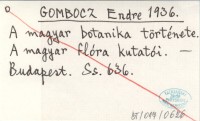 GOMBOCZ Endre 1936.
A magyar botanika története.
A magyar flóra kutatói. —
Budapest. Ss. 636.
BT/019/0626